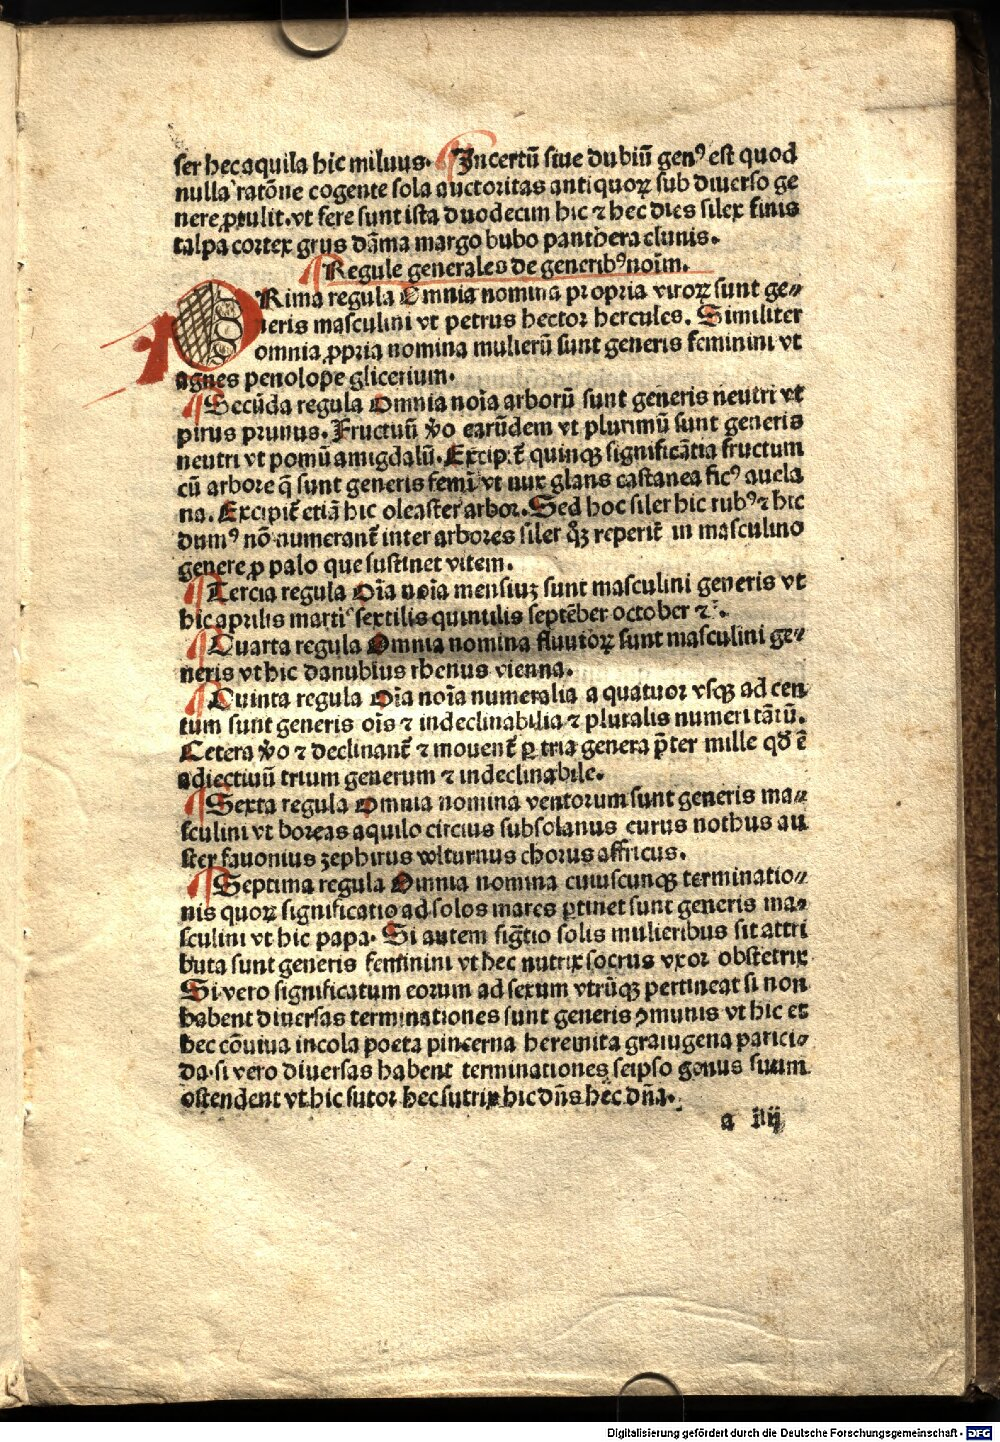 ser hec aquila hic miluus. Incertū siue dubiū genꝰ est quod
nulla ratōne cogente sola auctoritas antiquoꝝ sub diuerso ge
nere ꝓtulit. vt fere sunt ista duodecim hic ⁊ hec dies silex finis
talpa cortex grus dāma margo bubo panthera clunis.
Regule generales de generibꝰ noīm.
PRima regula Omnia nomina propria viroꝝ sunt ge⸗
neris masculini vt petrus hector hercules. Similiter
omnia ꝓpria nomina mulierū sunt generis feminini vt
agnes penolope glicerium.
Secūda regula Omnia noīa arborū sunt generis neutri vt
pirus prunus. Fructuū ꝟo earūdem vt plurimū sunt generis
neutri vt pomū amigdalū. Excipit̄ quinqꝫ significātia fructum
cū arbore q̄ sunt generis femī vt nux glans castanea ficꝰ auela
na. Excipit̄ etiā hic oleaster arbor. Sed hoc siler hic rubꝰ ⁊ hic
dumꝰ nō numerant̄ inter arbores siler qꝫ reperit̄ in masculino
genere ꝓ palo que sustinet vitem.
Tercia regula Oīa noīa mensiuꝫ sunt masculini generis vt
hic aprilis martiꝰ sextilis quintilis septēber october ⁊c̄.
Quarta regula Omnia nomina fluuioꝝ sunt masculini ge⸗
neris vt hic danubius rhenus vienna.
Quinta regula Oīa noīa numeralia a quatuor vsqꝫ ad cen
tum sunt generis oīs ⁊ indeclinabilia ⁊ pluralis numeri tātū.
Cetera ꝟo ⁊ declinant̄ ⁊ mouent̄ ꝑ tria genera p̄ter mille qđ ē
adiectiuū trium generum ⁊ indeclinabile.
Sexta regula Omnia nomina ventorum sunt generis ma⸗
sculini vt boreas aquilo circius subsolanus eurus nothus au
ster fauonius zephirus wlturnus chorus affricus.
Septima regula Omnia nomina cuiuscunqꝫ terminatio⸗
nis quoꝝ significatio ad solos mares ꝑtinet sunt generis ma⸗
sculini vt hic papa. Si autem sigt̄io solis mulieribus sit attri
buta sunt generis feminini vt hec nutrix socrus vxor obstetrix
Si vero significatum eorum ad sexum vtrūqꝫ pertineat si non
habent diuersas terminationes sunt generis ꝯmunis vt hic et
hec cōuiua incola poeta pincerna heremita graiugena parici⸗
da. si vero diuersas habent terminationes seipso genus suum
ostendent vt hic sutor hec sutrix hic dn̄s hec dn̄a.
a iij
Digitalisierung gefördert durch die Deutsche Forschungsgemeinschaft - DFG